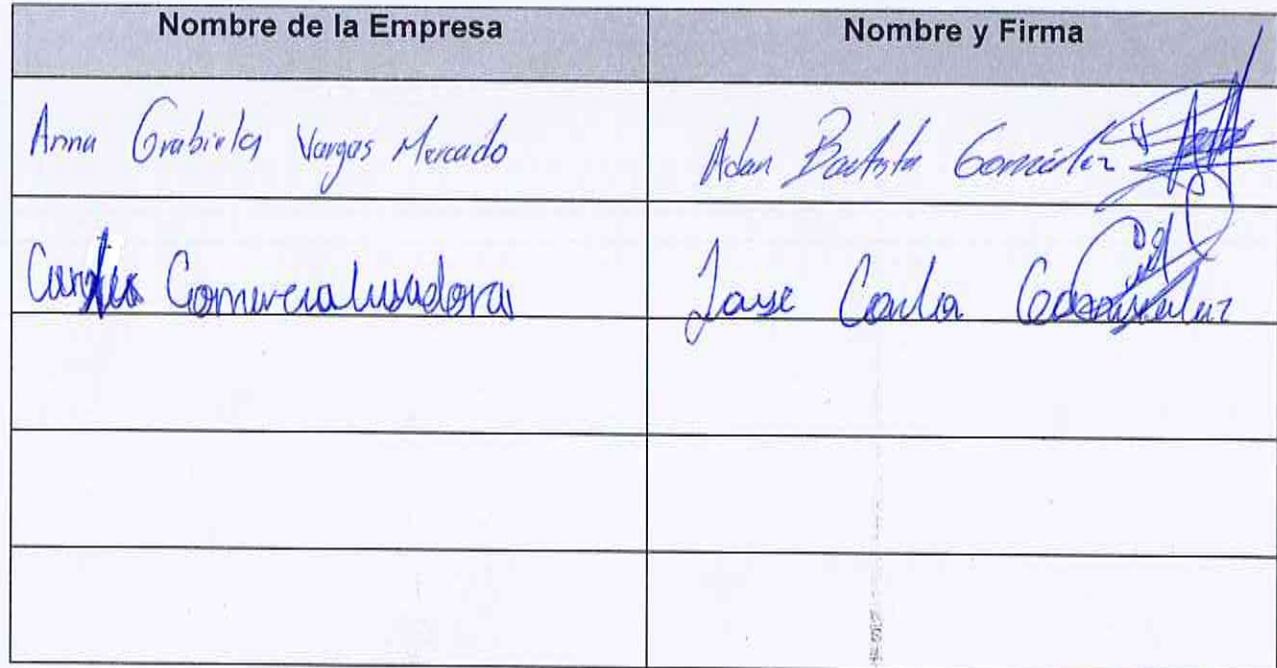 Nombre de la Empresa Nombre y Firma
Anna Grabiela Vargas Mercado Adan Bautista González
Comercialusadora Jose Carlos